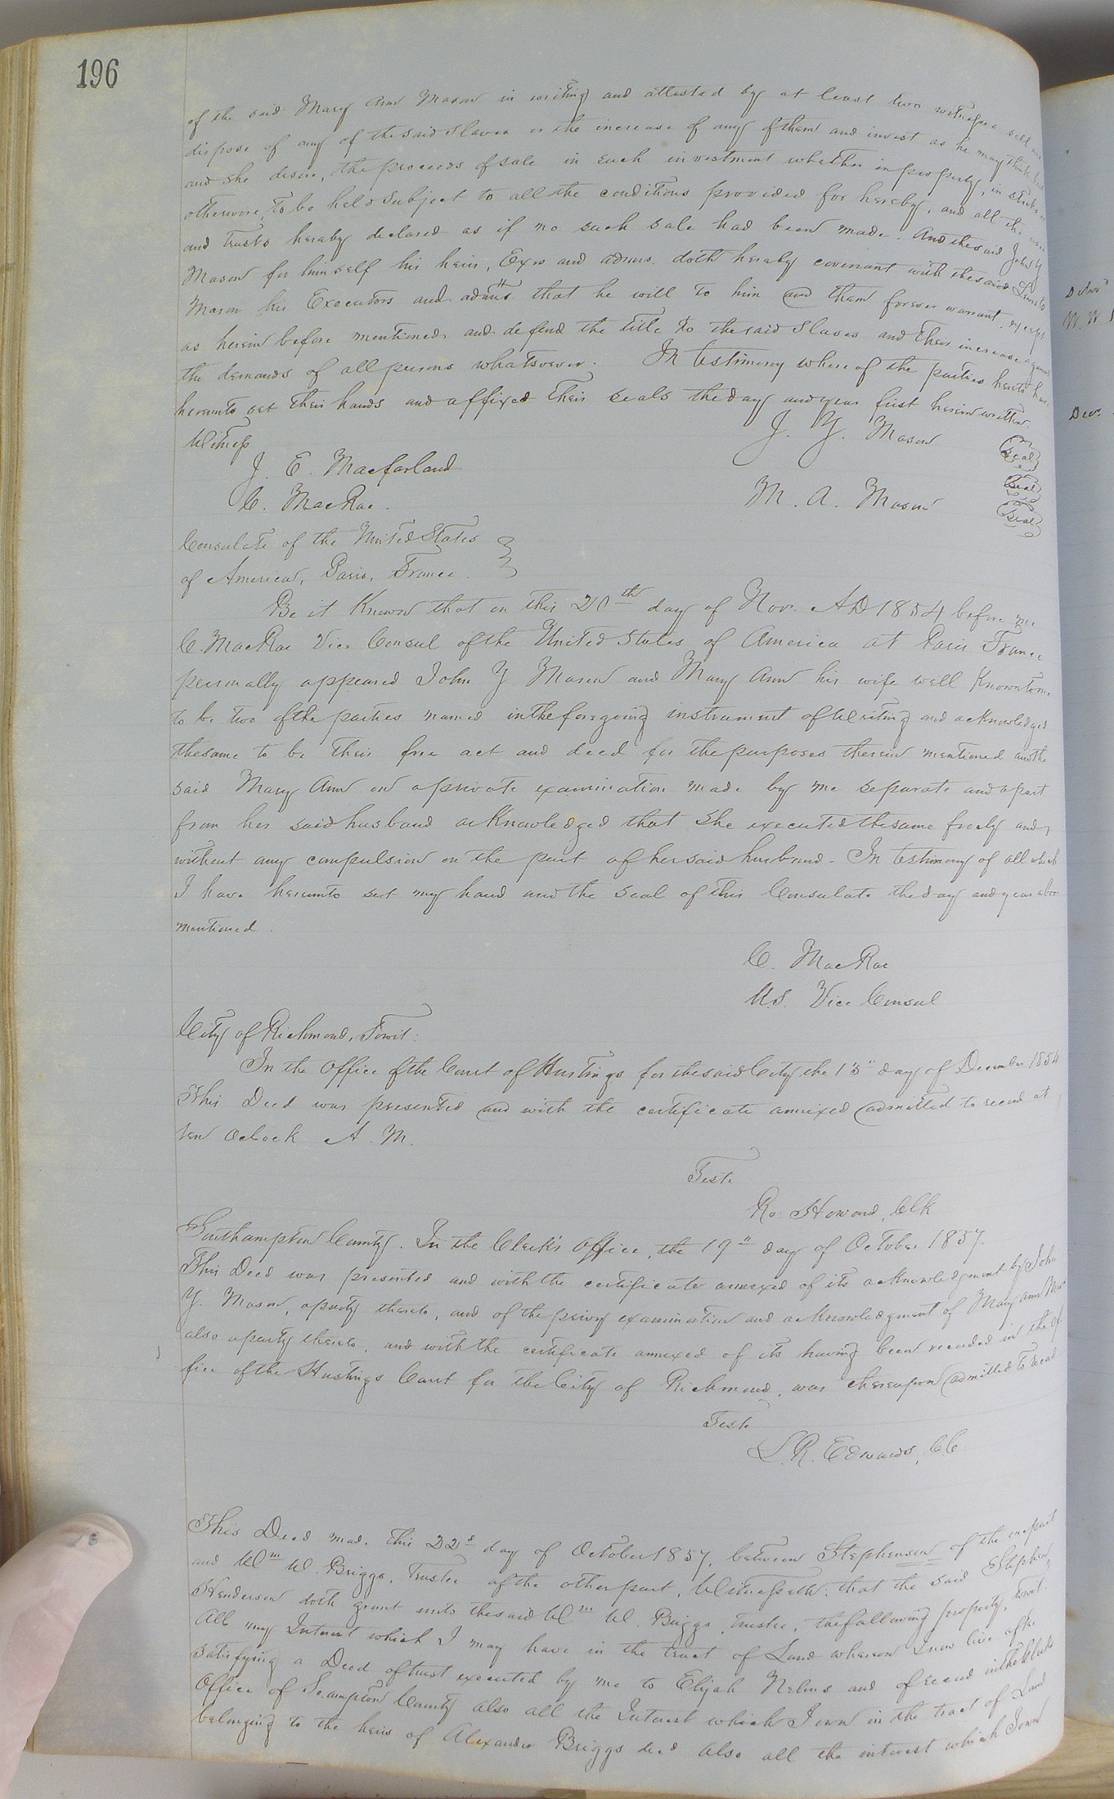 196
of the said Mary Ann Mason in writing and attested by at least two witnesses sell and
dispose of any of the said slaves or the increase of any of them and invest as he may think best
and she desire, the proceeds of sale in such investment whether in property, in stocks or
otherwise, to be held subject to all the conditions provided for hereby, and all the uses
and trusts hereby declared as if no such sale had been made. And the said John Y
Mason for himself his heirs, Exors and admrs. doth hereby covenant with the said Lewis
Mason his Executors and admrs that he will to him and them forever warrant, except
as herein before mentioned, and defend the title to the said slaves and their increase against
the demands of all persons whatsoever. In testimony whereof the parties hereto have
hereunto set their hands and affixed their seals the day and year first herein written.
Witness
J. Y. Mason (Seal)
J. E. Macfarland (Seal)
C. MacRae. M. A. Mason (Seal)
Consulate of the United States
of America, Paris, France.
Be it Known that on this 20th day of Nov. AD 1854 before me
C. MacRae Vice Consul of the United States of America at Paris France
personally appeared John Y Mason and Mary Ann his wife well Known to me
to be two of the parties named in the foregoing instrument of writing and acknowledged
the same to be their free act and deed for the purposes therein mentioned and the
said Mary Ann on a private examination made by me separate and apart
from her said husband acknowledged that she executed the same freely and
without any compulsion on the part of her said husband. In testimony of all which
I have hereunto set my hand and the seal of this Consulate the day and year above
mentioned.
C. MacRae
U.S. Vice Consul
City of Richmond, Towit:
In the Office of the Court of Hustings for the said City the 13" day of December 1854
This Deed was presented and with the certificate annexed admitted to record at
ten Oclock A. M.
Teste
Ro. Howard, Clk
Southampton County. In the Clerk's Office, the 19th day of October 1857.
This Deed was presented and with the certificate annexed of its acknowledgment by John
Y. Mason, a party thereto, and of the privy examination and acknowledgment of Mary Ann Mason
also a party thereto, and with the certificate annexed of its having been recorded in the of-
fice of the Hustings Court for the City of Richmond, was thereupon admitted to record
Teste
L. R. Edwards, C.C.
This Deed made this 22d day of October 1857, between Stephenson of the one part
and Wm W. Briggs, Trustee of the other part, Witnesseth: that the said Stephen
Henderson doth grant unto the said Wm W. Briggs, trustee, the following property, towit:
All my Interest which I may have in the tract of Land whereon I now live after
satisfying a Deed of trust executed by me to Elijah Nelms and of record in the Clerks
Office of Shampton County also all the Interest which I own in the tract of Land
belonging to the heirs of Alexander Briggs decd also all the interest which I own